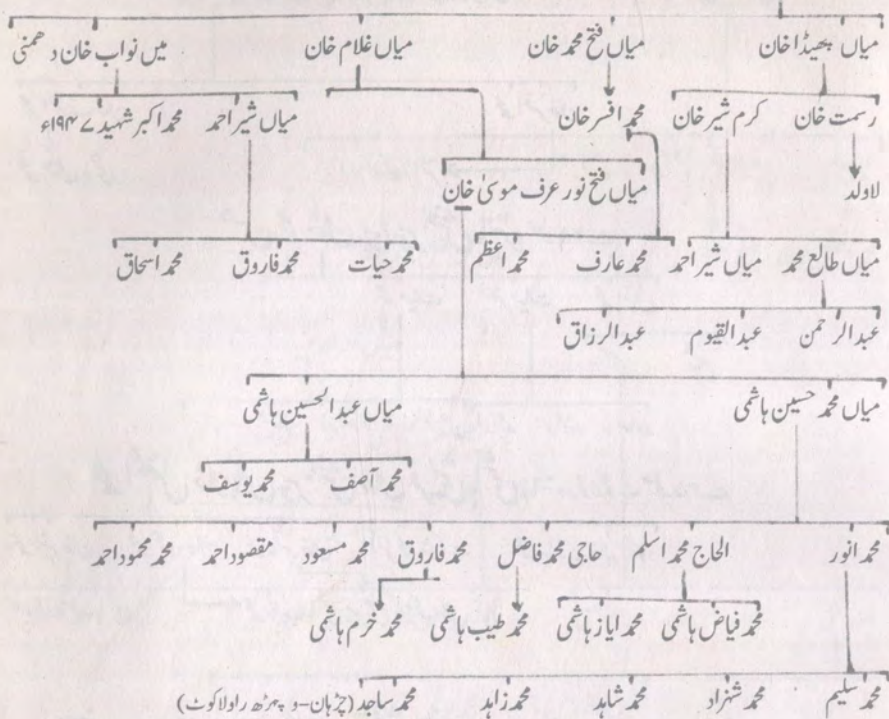 میاں بھیڈا خان میاں فتح محمد خان میاں غلام خان میں نواب خان دھمنی
رسمت خان کرم شیر خان محمد افسر خان میاں شیر احمد محمد اکبر شہید ۱۹۴۷ء
لاولد میاں فتح نور عرف موسیٰ خان
میاں طالع محمد میاں شیر احمد محمد عارف محمد اعظم محمد حیات محمد فاروق محمد اسحاق
عبدالرحمن عبدالقیوم عبدالرزاق
میاں محمد حسین ہاشمی میاں عبدالحسین ہاشمی
محمد آصف محمد یوسف
محمد انور الحاج محمد اسلم حاجی محمد فاضل محمد فاروق محمد مسعود مقصود احمد محمد محمود احمد
محمد فیاض ہاشمی محمد ایاز ہاشمی محمد طیب ہاشمی محمد خرم ہاشمی
محمد سلیم محمد شہزاد محمد شاہد محمد زاہد محمد ساجد (چڑہان-و پہڑھ راولاکوٹ)